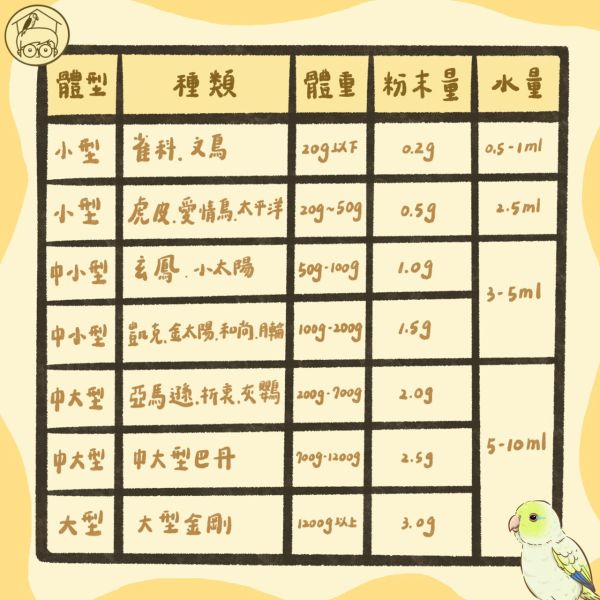 體型 種類 體重 粉末量 水量
小型 雀科.文鳥 20g以下 0.2g 0.5-1ml
小型 虎皮.愛情鳥.太平洋 20g~50g 0.5g 2.5ml
中小型 玄鳳.小太陽 50g-100g 1.0g 3-5ml
中小型 凱克.金太陽.和尚.月輪 100g-200g 1.5g
中大型 亞馬遜.折衷.灰鸚 200g-700g 2.0g 5-10ml
中大型 中大型巴丹 700g-1200g 2.5g
大型 大型金剛 1200g以上 3.0g